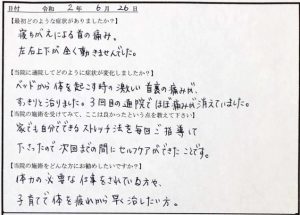 日付 令和 2年 6月 26日
【最初どのような症状がありましたか?】
寝ちがえによる首の痛み。
左右上下が全く動きませんでした。
【当院に通院してどのように症状が変化しましたか?】
ベッドから体を起こす時の激しい首裏の痛みが、
すっきりと治りました。3回目の通院でほぼ痛みが消えていました。
【当院の施術を受けてみて、ここは良かったという点を教えて下さい】
家でも自分でできるストレッチ法を毎回ご指導して
下さったので次回までの間にセルフケアができたことです。
【当院の施術をどんな方にお勧めしたいですか?】
体力の必要な仕事をされている方や、
子育てで体を疲れから早く治したい方。